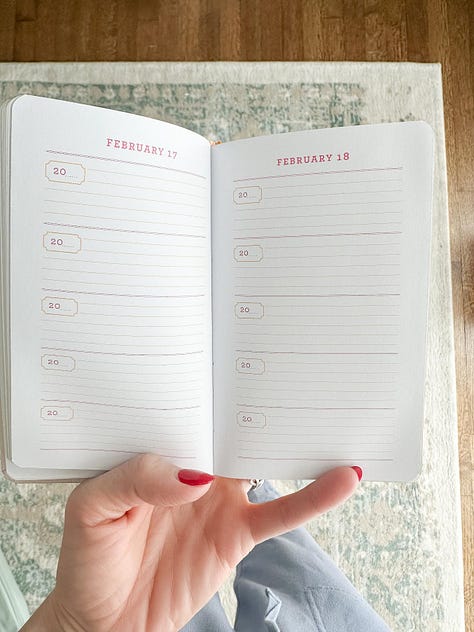 FEBRUARY 17
20....
20....
20....
20....
20....
FEBRUARY 18
20....
20....
20....
20....
20....